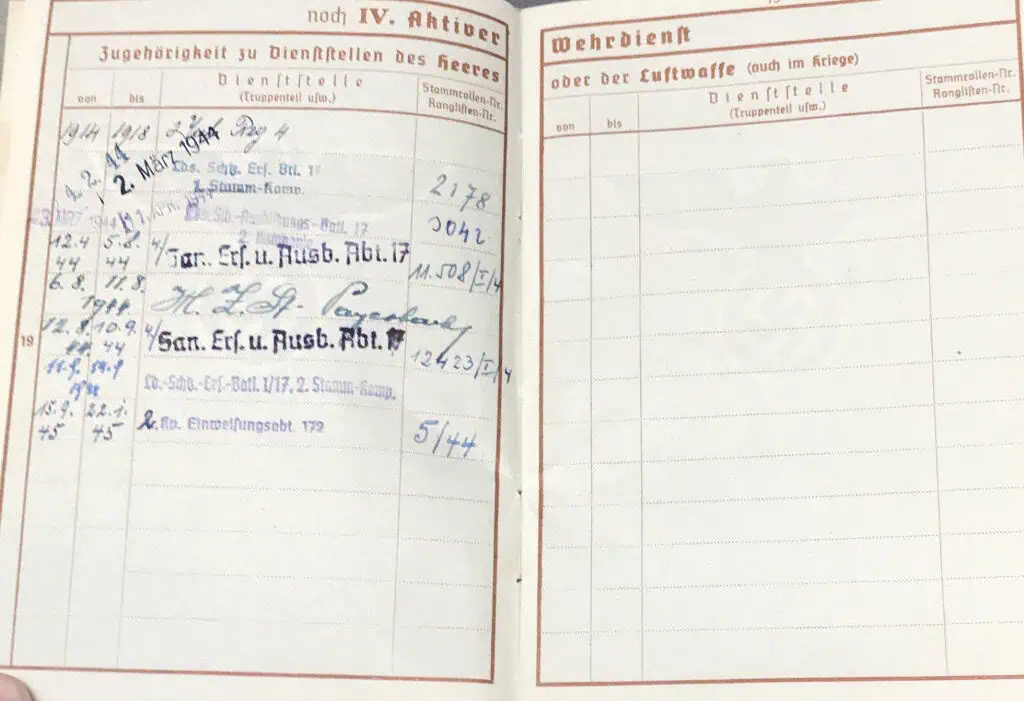 noch IV. Aktiver
Zugehörigkeit zu Dienststellen des Heeres
von bis Dienststelle (Truppenteil usw.) Stammrollen-Nr. Ranglisten-Nr.
1914 1918 4
1. 2. 44 2. März 1944 Lds. Schtz. Ers. Btl. 17
1. Stamm-Komp. 2178
-Ausbildungs-Batl. 17 3042
2. Kompanie
12.4 44 5.8. 44 4/San. Ers. u. Ausb. Abt. 17 11.508/I/4
6.8. 11.8. 1944 H. Z. St.
12.8. 44 10.9. 44 4/San. Ers. u. Ausb. Abt. 17 12423/I/4
19
11.9. 14.9 Ld.-Schtz.-Ers.-Batl. 1/17, 2. Stamm-Komp.
15.9. 45 22.1. 45 2. Kp. Einweisungsabt. 172 5/44
Wehrdienst
oder der Luftwaffe (auch im Kriege)
von bis Dienststelle (Truppenteil usw.) Stammrollen-Nr. Ranglisten-Nr.